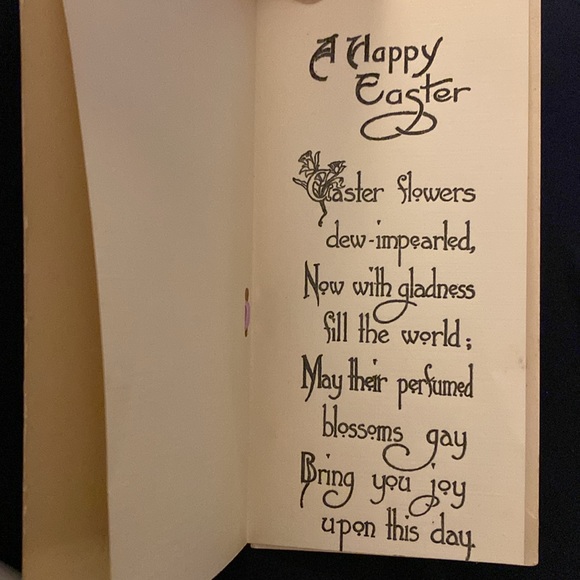 A Happy
Easter
Easter flowers
dew-impearled,
Now with gladness
fill the world;
May their perfumed
blossoms gay
Bring you joy
upon this day.